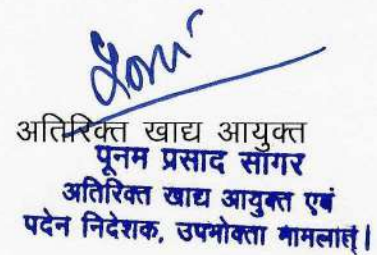 अतिरिक्त खाद्य आयुक्त
पूनम प्रसाद सागर
अतिरिक्त खाद्य आयुक्त एवं
पदेन निदेशक, उपभोक्ता मामलात्।